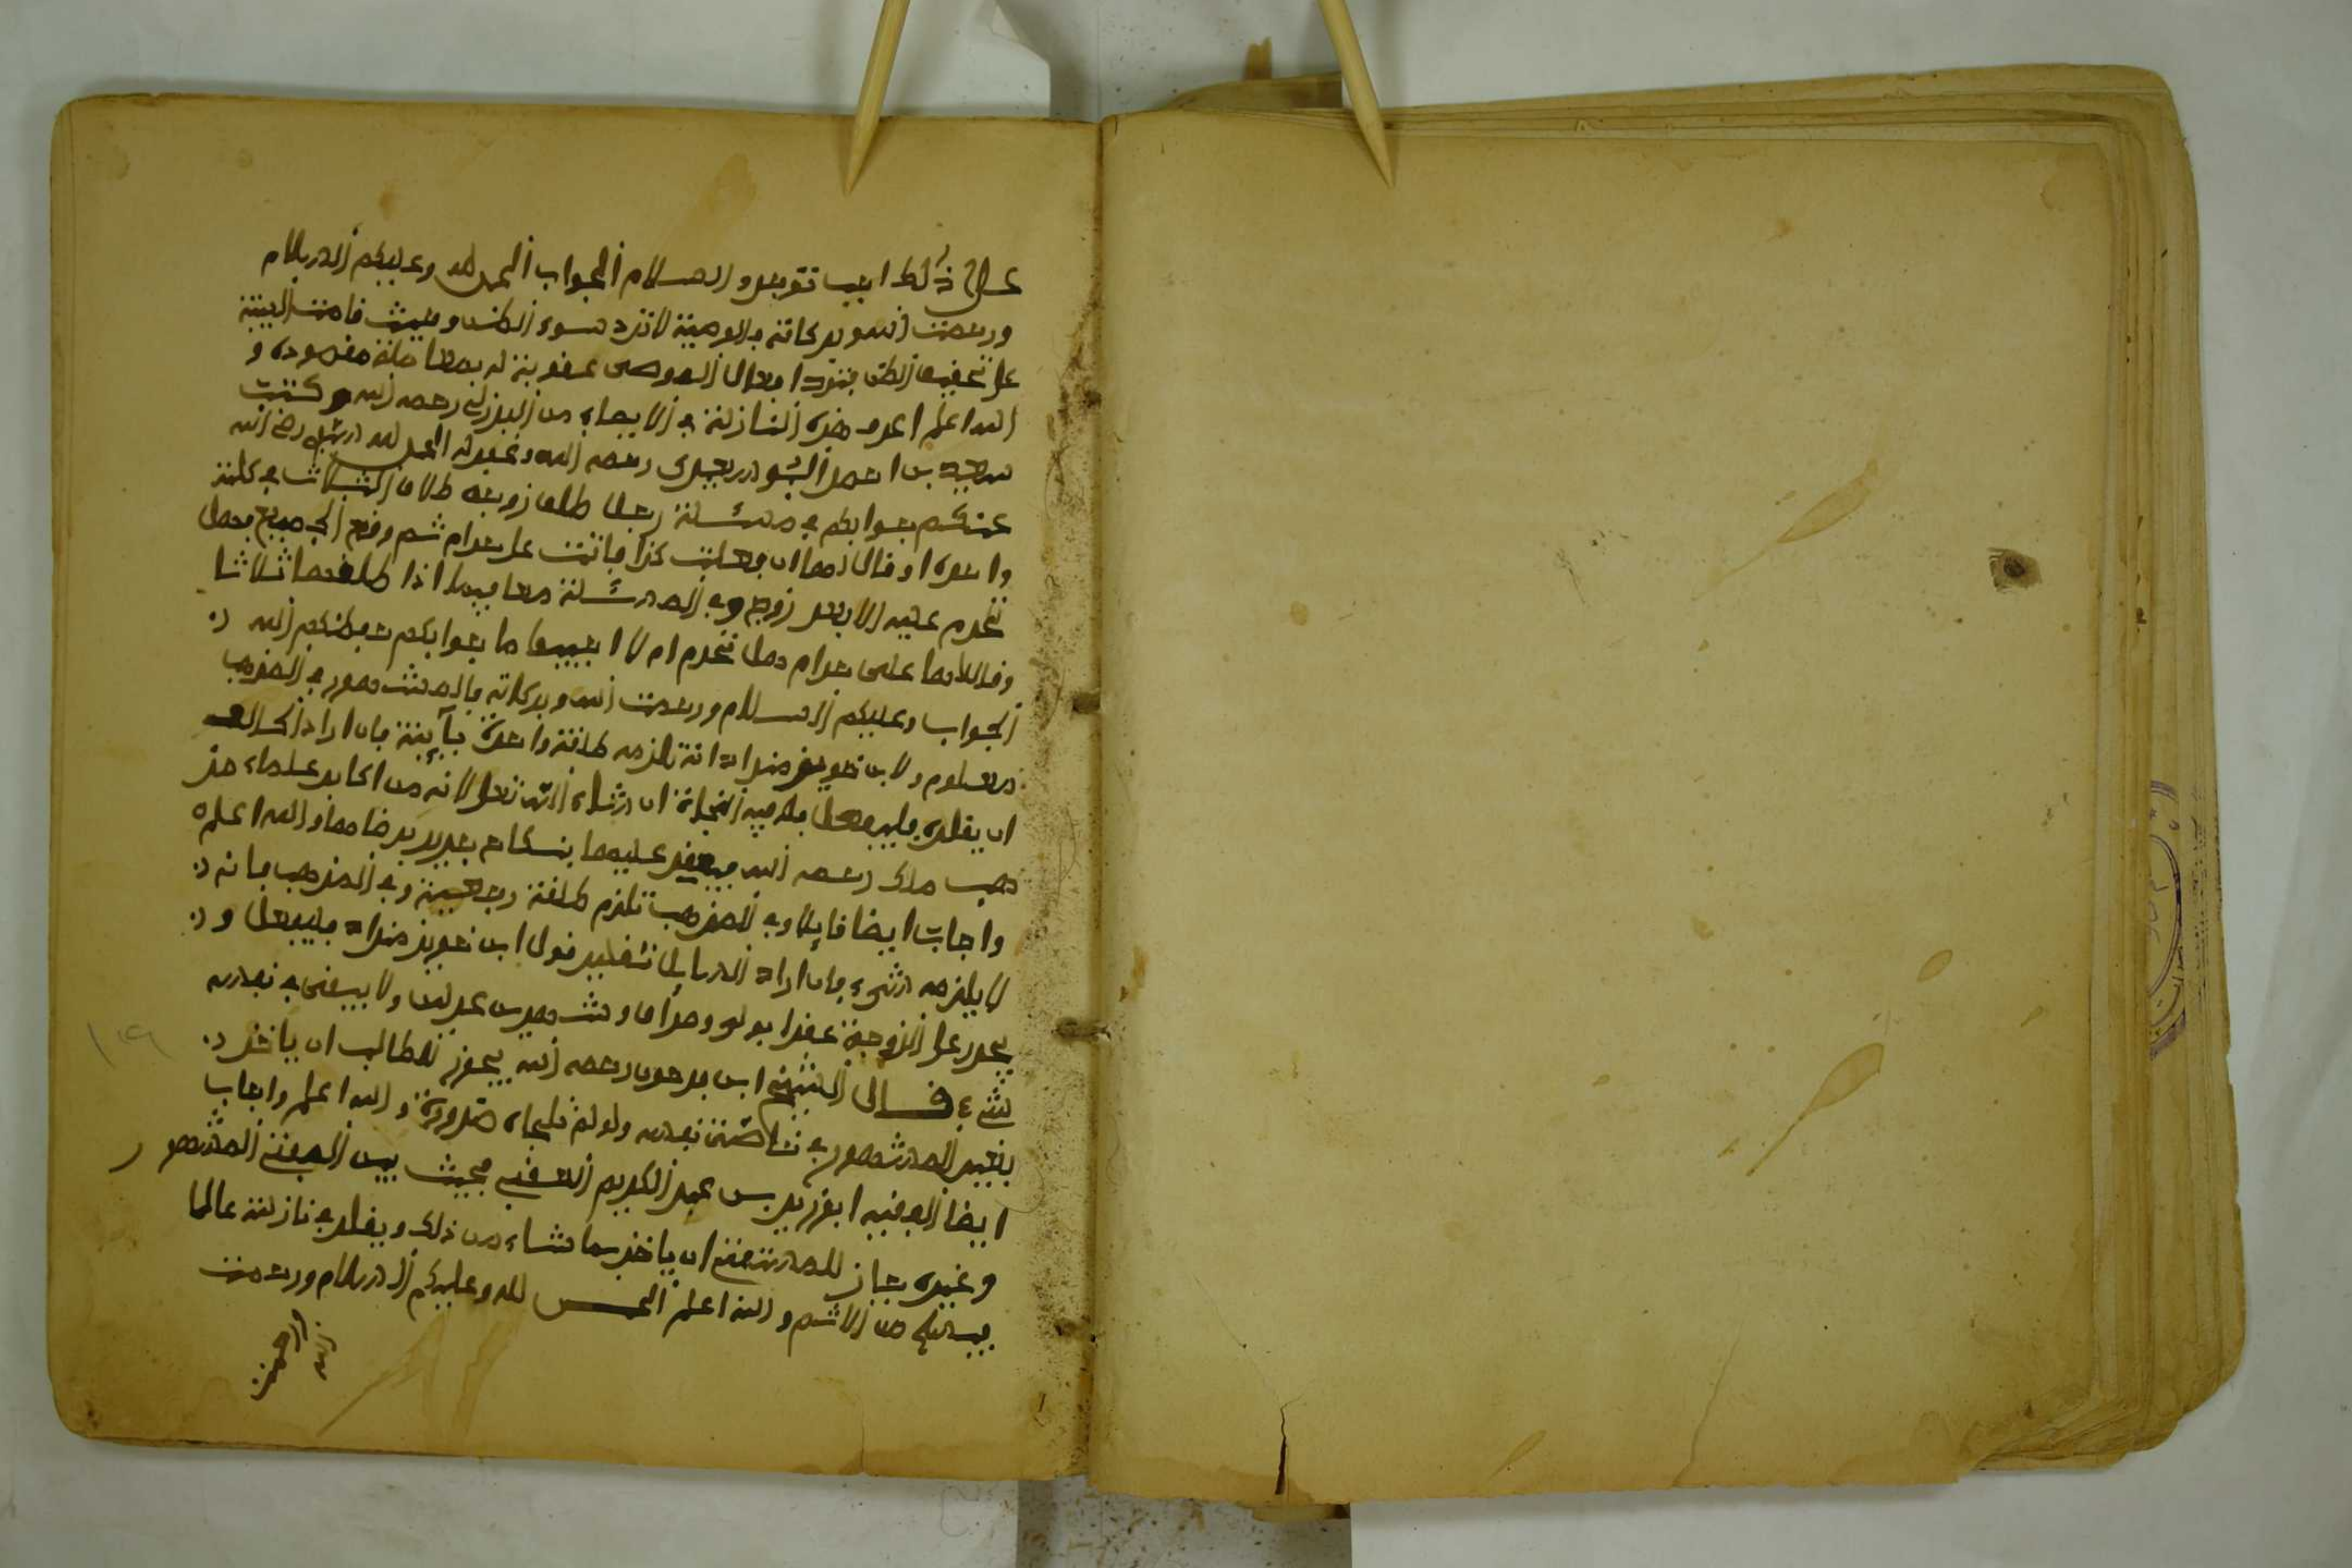 على ذلك اجب توجر والسلام الجواب الحمد لله وعليكم السلام
ورحمت الله وبركاته والوصية لا ترد بسوء الظن وحيث قامت البينة
على تحقيق الظن بترد ابعال الموصي عقوبة له بمعاملة مقصوده و
الله اعلم اعرف هذه النازلة في الايصاء من البرزلي رحمه الله وكتبت
سعيد بن احمد رحمه الله ونحوه الحمد لله رضي الله
عنكم جوابكم في مسئلة رجل طلق زوجه طلاق الثلاث في كلمة
واحدة او قال لها ان فعلت كذا فانت علي حرام ثم وقع الجميع فهل
تحرم عليه الا بعد زوج وفي المسئلة معا فيما اذا طلقها ثلاثا
وقال لها علي حرام هل تحرم ام لا اجيبوا ما جوابكم حفظكم الله
الجواب وعليكم السلام ورحمت الله وبركاته فالمشهور في المذهب
معلوم ولابن خويز منداد انه تلزمه طلقة واحدة بآينة فان اراد الحالف
ان يقلده فليفعل ففيه النجاة ان شاء الله تعلى لانه من اكابر علماء مذ
هب مالك رحمه الله فيعقد عليها بنكاح جديد برضاها والله اعلم
واجاب ايضا قايلا وفي المذهب تلزم طلقة رجعية وفي المذهب فانه
لا يلزمه شيء فان اراد السايل تقليد قول ابن خويز منداد فليفعل و
يجدد على الزوجة عقدا بولي وصداق وشهيدين عدلين ولا يبقى في نفسه
شيء قال الشيخ ابن فرحون رحمه الله يجوز للطالب ان ياخذ
بغير المشهور في خاصة نفسه ولو لم تلجاه ضرورة والله اعلم واجاب
ايضا الفقيه ابوزيد بن عبد الكريم الفقيه بحيث بين المفتي المشهور
وغيره جاز للمستفتي ان ياخذ بما شاء من ذلك ويقلد في نازلته عالما
فيسلم من الاثم والله اعلم الحمد لله وعليكم السلام ورحمت
الله